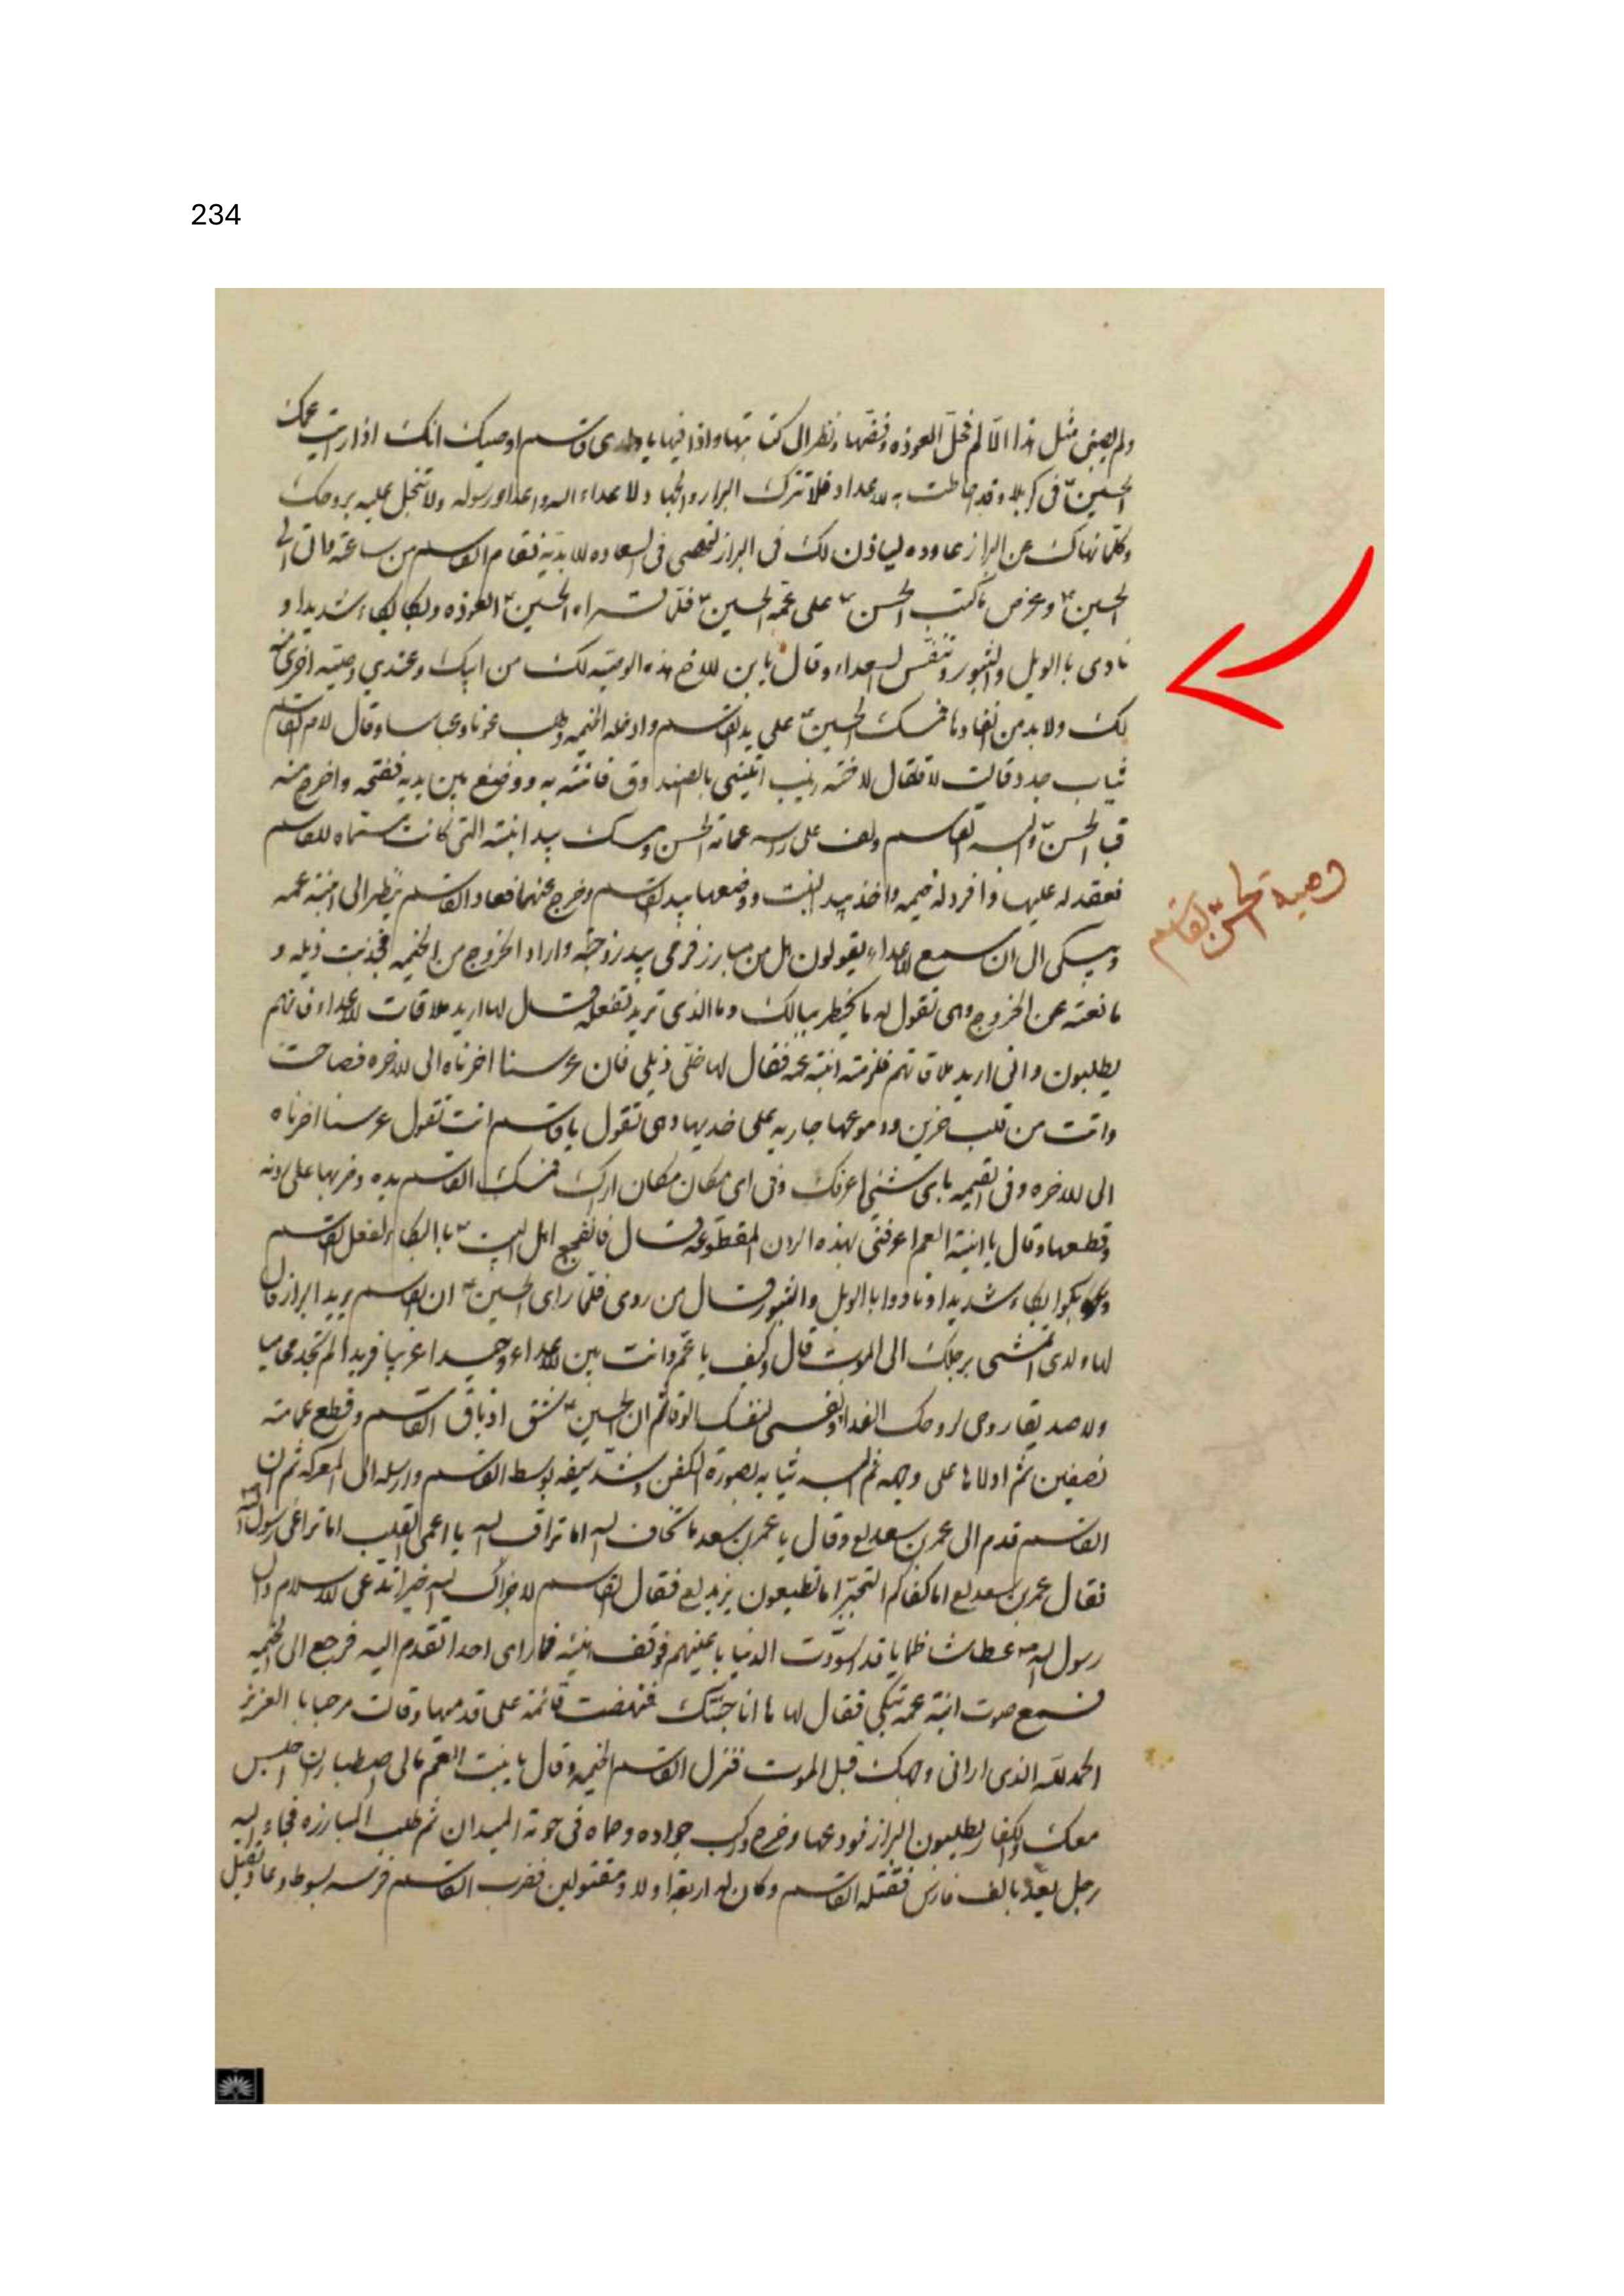 234
ولم يصبنى مثل هذا الالم فحل العوذه وفضها ونظر الى كتابتها واذا فيها يا ولدى قاسم اوصيك انك اذا رايت عمك
الحسين فى كربلا وقد احاطت به الاعداء فلا تترك البراز والجهاد لاعداء الله واعداء رسوله ولا تبخل عليه بروحك
وكلما نهاك عن البراز عاوده لياذن لك فى البراز لتحصى فى السعاده الابديه فقام القاسم من ساعته واتى الى
الحسين وعرض ما كتب الحسن على عمه الحسين فلما قراه الحسين العوذه وبكا بكاء شديدا و
نادى بالويل والثبور وتنفس الصعداء وقال يابن الاخ هذه الوصيه لك من ابيك وعندي وصيه اخرى منه
لك ولا بد من انفاذها فمسك الحسين على يد القاسم وادخله الخيمه وطلب عونا وعباسا وقال لام القاسم
ثياب جدد قالت لا فقال لاخته زينب ائتينى بالصندوق فاتته به ووضع بين يديه ففتحه واخرج منه
قبا الحسن والبسه القاسم ولف على راسه عمامه الحسن ومسك بيد ابنته التى كانت مسماه للقاسم
فعقد له عليها وافرد له خيمه واخذ بيد البنت ووضعها بيد القاسم وخرج عنهما فعاد القاسم ينظر الى ابنة عمه
ويبكى الى ان سمع الاعداء يقولون هل من مبارز فرمى بيد زوجته واراد الخروج من الخيمه فجذبت ذيله و
مانعته عن الخروج وهى تقول له ما يخطر ببالك وما الذى تريد تفعله قال لها اريد ملاقات الاعداء فانهم
يطلبون وانى اريد ملاقاتهم فلزمته ابنة عمه فقال لها خلى ذيلى فان عرسنا اخرناه الى الاخره فصاحت
وانت من قلب حزين ودموعها جاريه على خديها وهى تقول يا قاسم انت تقول عرسنا اخرناه
الى الاخره وفى القيمه باى شئ اعرفك وفى اى مكان اراك فمسك القاسم يده وضربها على ردنه
وقطعها وقال يا ابنة العم اعرفنى بهذه الردن المقطوعه قال فانفجع اهل البيت بالبكاء لفعل القاسم
وبكوا بكاء شديدا ونادوا بالويل والثبور قال من روى فلما راى الحسين ان القاسم يريد البراز قال
له يا ولدى اتمشى برجلك الى الموت قال وكيف يا عم وانت بين الاعداء وحيدا غريبا فريدا لم تجد محاميا
ولا صديقا روحى لروحك الفدا ونفسى لنفسك الوقا ثم ان الحسين شق ازياق القاسم وقطع عمامته
نصفين ثم ادلاها على وجهه ثم البسه ثيابه بصورة الكفن وشد سيفه بوسط القاسم وارسله الى المعركه ثم ان
القاسم قدم الى عمر بن سعد لع وقال يا عمر بن سعد ما تخاف الله اما تراقب الله يا اعمى القلب اما تراعى رسول الله
فقال عمر بن سعد لع اما كفاكم التجبر اما تطيعون يزيد لع فقال القاسم لا جزاك الله خيرا تدعى الاسلام وال
رسول الله عطاشا ظمايا قد اسودت الدنيا باعينهم فوقف هنيئه فما راى احدا تقدم اليه فرجع الى الخيمه
فسمع صوت ابنة عمه تبكى فقال لها ها انا جئتك فنهضت قائمة على قدميها وقالت مرحبا بالعزيز
الحمد لله الذى ارانى وجهك قبل الموت فنزل القاسم الخيمه وقال يا بنت العم مالى اصطبار ان اجلس
معك والكفار يطلبون البراز فودعها وخرج وركب جواده وحماه فى حومة الميدان ثم طلب المبارزه فجاء اليه
رجل يعد بالف فارس فقتله القاسم وكان له اربعة اولاد مقتولين فضرب القاسم فرسه بسوط وعاد يقتل
وصية الحسن لقاسم